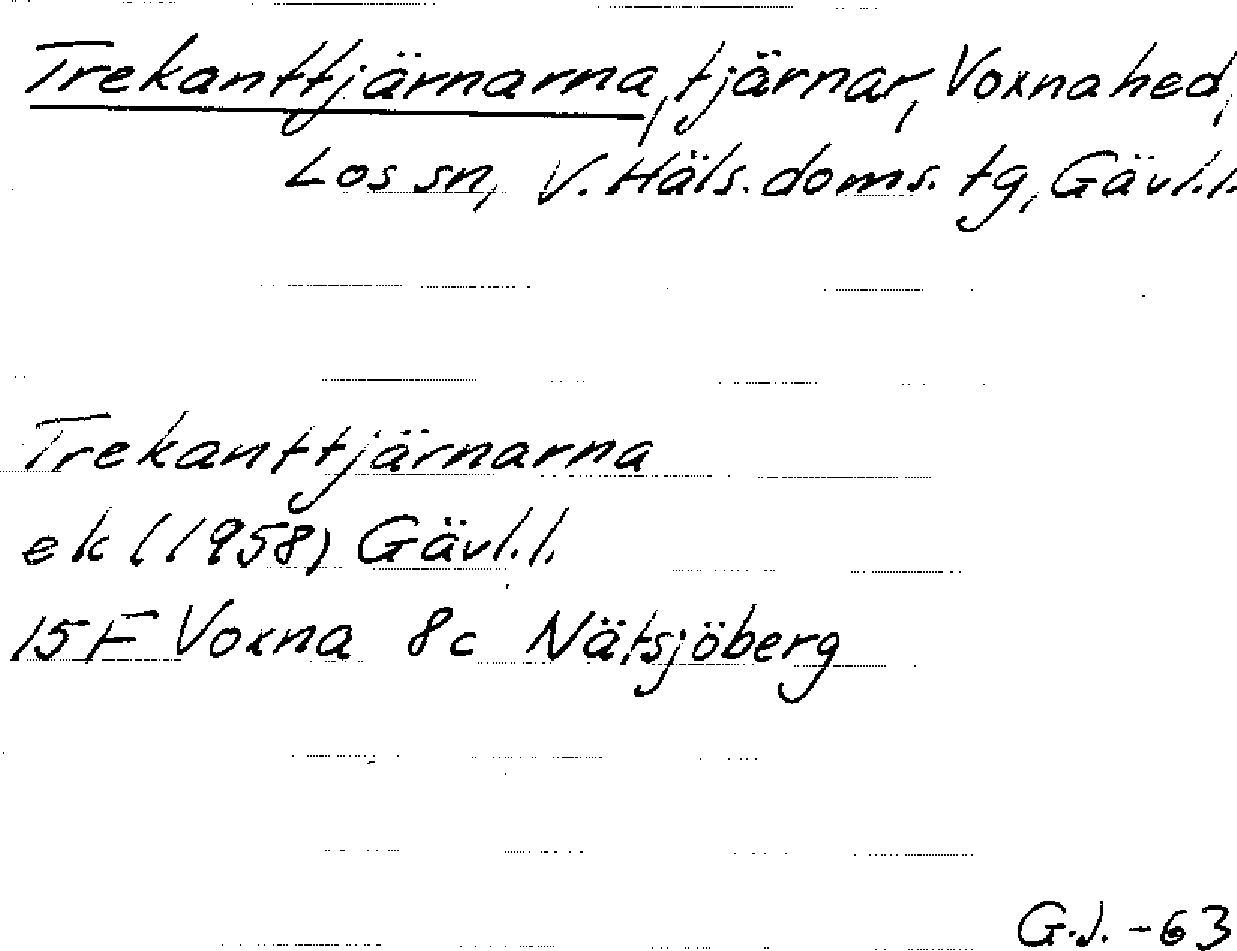 Trekanttjärnarna, tjärnar, Voxnahed,
Los sn, V. Häls. doms. tg, Gävl.l.
Trekanttjärnarna
ek (1958) Gävl.l.
15F Voxna 8c Nätsjöberg
G.J. -63